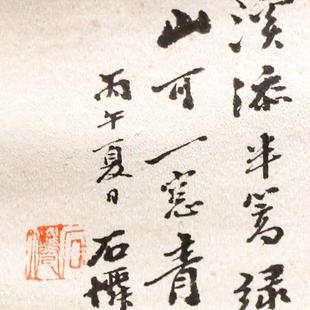 溪添半篙緑
山可一窓青
丙午夏日 石